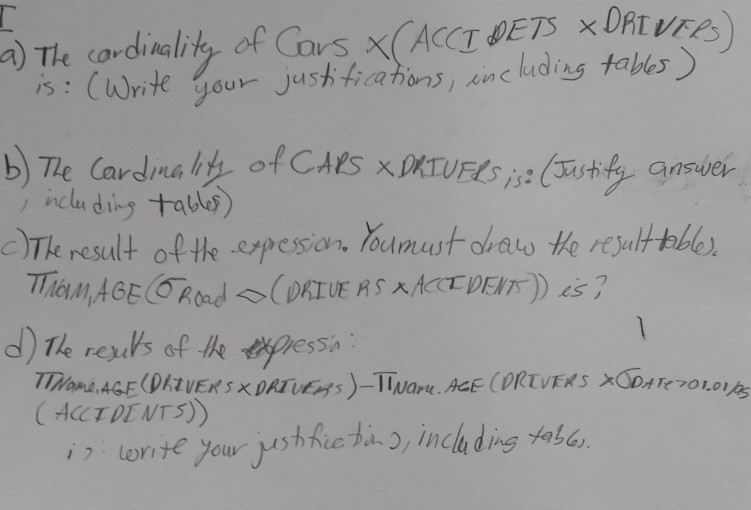 I
a) The cardinality of Cars ×(ACCIDETS × DRIVERS)
is: (Write your justifications, including tables)
b) The Cardinality of CARS × DRIVERS is: (Justify answer
, including tables)
c) The result of the expression. You must draw the result tables.
ΠNAM, AGE (σRoad <> (DRIVERS × ACCIDENTS)) is?
d) The results of the expressin:
ΠName, AGE (DRIVERS × DRIVERS) – ΠName. AGE (DRIVERS × σDATE>01.01/
(ACCIDINTS))
is: write your justfictions, including tables.